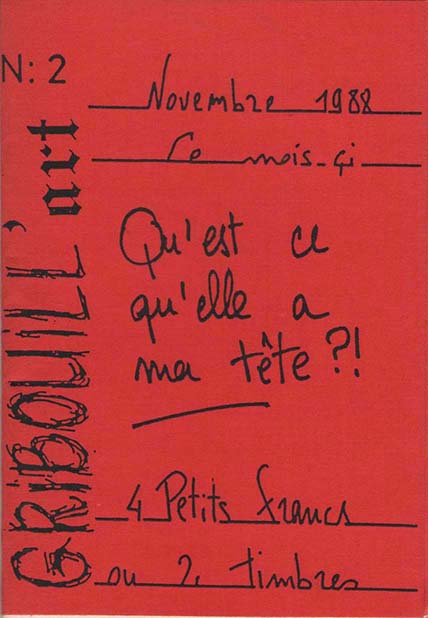 N: 2
GRIBOUILL' art
Novembre 1988
Ce mois-çi
Qu'est ce
qu'elle a
ma tête ?!
4 Petits francs
ou 2 timbres